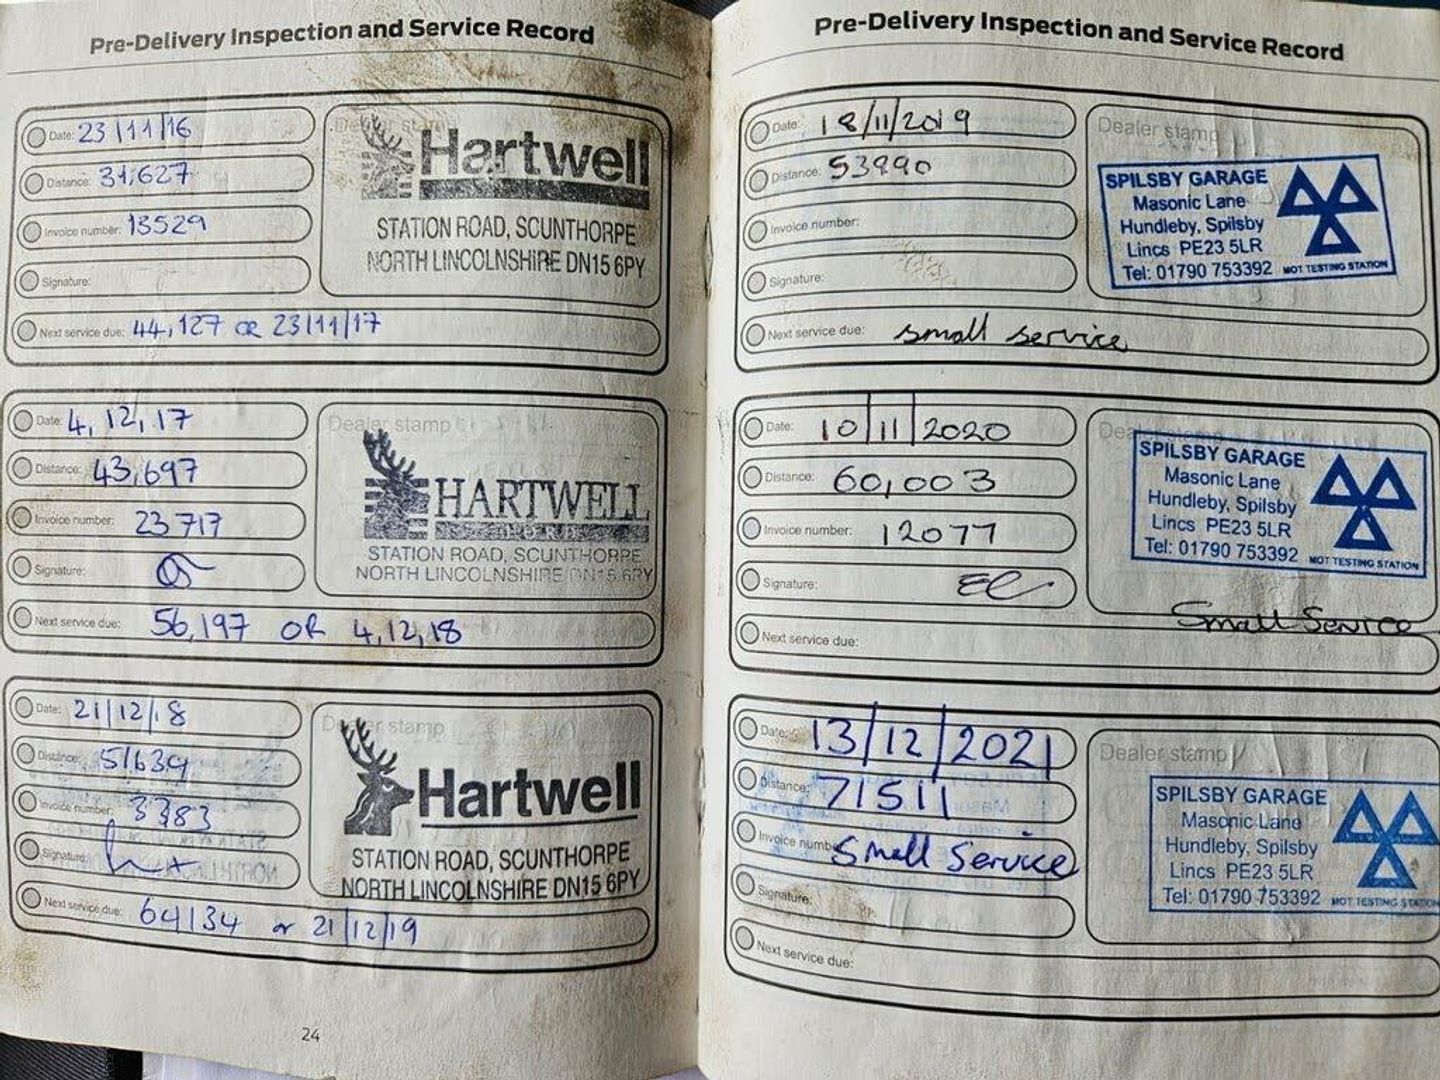 Pre-Delivery Inspection and Service Record
Date: 23/11/16
Distance: 31,627
Invoice number: 13529
Signature:
Next service due: 44,127 OR 23/11/17
Dealer stamp
Hartwell
STATION ROAD, SCUNTHORPE
NORTH LINCOLNSHIRE DN15 6PY
Date: 4,12,17
Distance: 43,697
Invoice number: 23717
Signature:
Next service due: 56,197 OR 4,12,18
Dealer stamp
HARTWELL
STATION ROAD, SCUNTHORPE
NORTH LINCOLNSHIRE DN15 6PY
Date: 21/12/18
Distance: 51639
Invoice number: 3783
Signature:
Next service due: 64134 or 21/12/19
Dealer stamp
Hartwell
STATION ROAD, SCUNTHORPE
NORTH LINCOLNSHIRE DN15 6PY
24
Pre-Delivery Inspection and Service Record
Date: 18/11/2019
Distance: 53990
Invoice number:
Signature:
Next service due: small service
Dealer stamp
SPILSBY GARAGE
Masonic Lane
Hundleby, Spilsby
Lincs PE23 5LR
Tel: 01790 753392 MOT TESTING STATION
Date: 10/11/2020
Distance: 60,003
Invoice number: 12077
Signature:
Next service due:
Dealer stamp
SPILSBY GARAGE
Masonic Lane
Hundleby, Spilsby
Lincs PE23 5LR
Tel: 01790 753392 MOT TESTING STATION
Small Service
Date: 13/12/2021
Distance: 71511
Invoice number: Small Service
Signature:
Next service due:
Dealer stamp
SPILSBY GARAGE
Masonic Lane
Hundleby, Spilsby
Lincs PE23 5LR
Tel: 01790 753392 MOT TESTING STATION